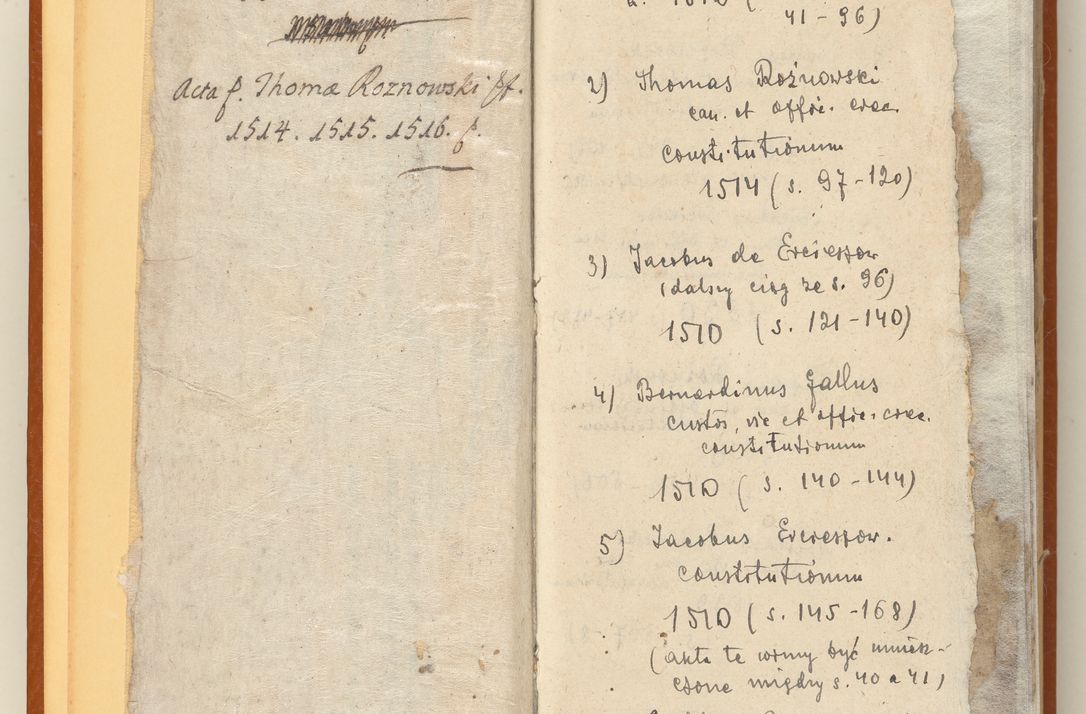 Acta p. Thomæ Roznowski
1514. 1515. 1516.
41 - 96)
2) Thomas Rożnowski
can. et offic. crac.
constitutionum
1514 (s. 97-120)
3) Jacobus de
(dalszy ciąg ze s. 96)
1510 (s. 121-140)
4) Bernardinus Gallus
custos, vic et offic. crac.
constitutionum
1510 (s. 140-144)
5) Jacobus
constitutionum
1510 (s. 145-168)
(akta te winny być umiesz-
czone między s. 40 a 41)